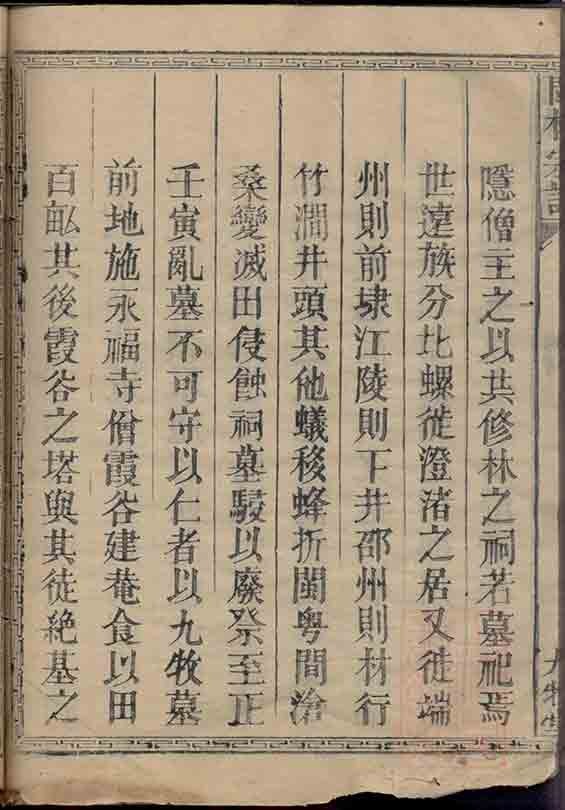 隱僧主之以共修林之祠若墓祀焉
世遠族分比螺徙澄渚之居又徙端
州則前埭江陵則下井邵州則材行
竹澗井頭其他蟻移蜂折閩粤間滄
桑變滅田侵蝕祠墓駸以廢祭至正
壬寅亂墓不可守以仁者以九牧墓
前地施永福寺僧霞谷建菴食以田
百畝其後霞谷之塔與其徒絶墓之